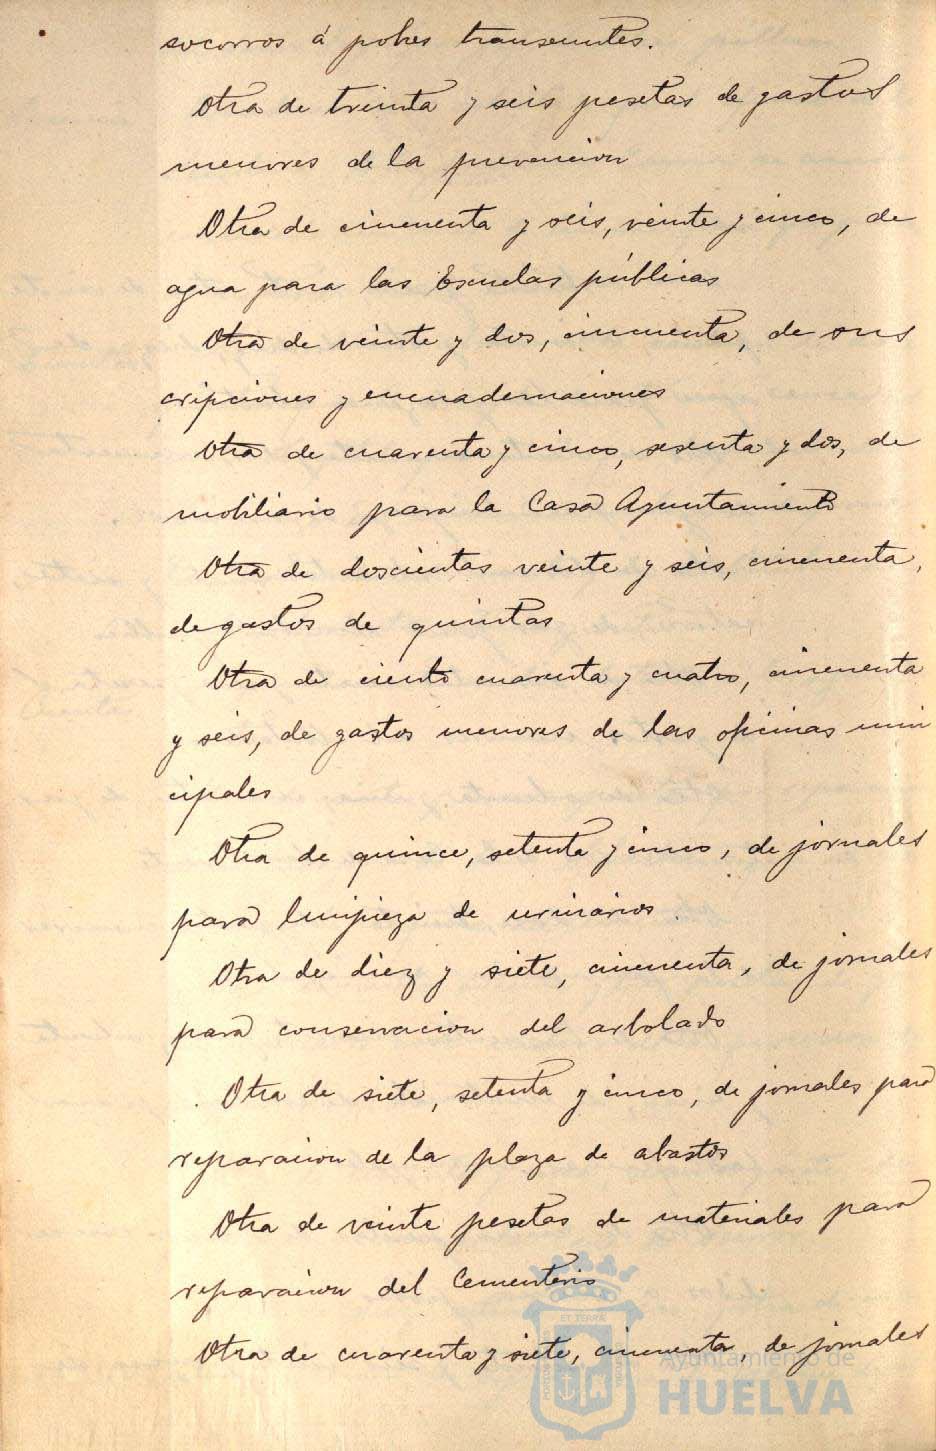 socorros á pobres transeuntes.
Otra de treinta y seis pesetas de gastos
menores de la prevencion
Otra de cincuenta y seis, veinte y cinco, de
agua para las Escuelas públicas
Otra de veinte y dos, cincuenta, de sus
cripciones y encuadernaciones
Otra de cuarenta y cinco, sesenta y dos, de
mobiliario para la Casa Ayuntamiento
Otra de doscientas veinte y seis, cincuenta,
de gastos de quintas
Otra de ciento cuarenta y cuatro, cincuenta
y seis, de gastos menores de las oficinas muni
cipales
Otra de quince, setenta y cinco, de jornales
para limpieza de urinarios.
Otra de diez y siete, cincuenta, de jornales
para conservacion del arbolado
Otra de siete, setenta y cinco, de jornales para
reparacion de la plaza de abastos
Otra de veinte pesetas de materiales para
reparacion del Cementerio
Otra de cuarenta y siete, cincuenta, de jornales
Ayuntamiento de
HUELVA